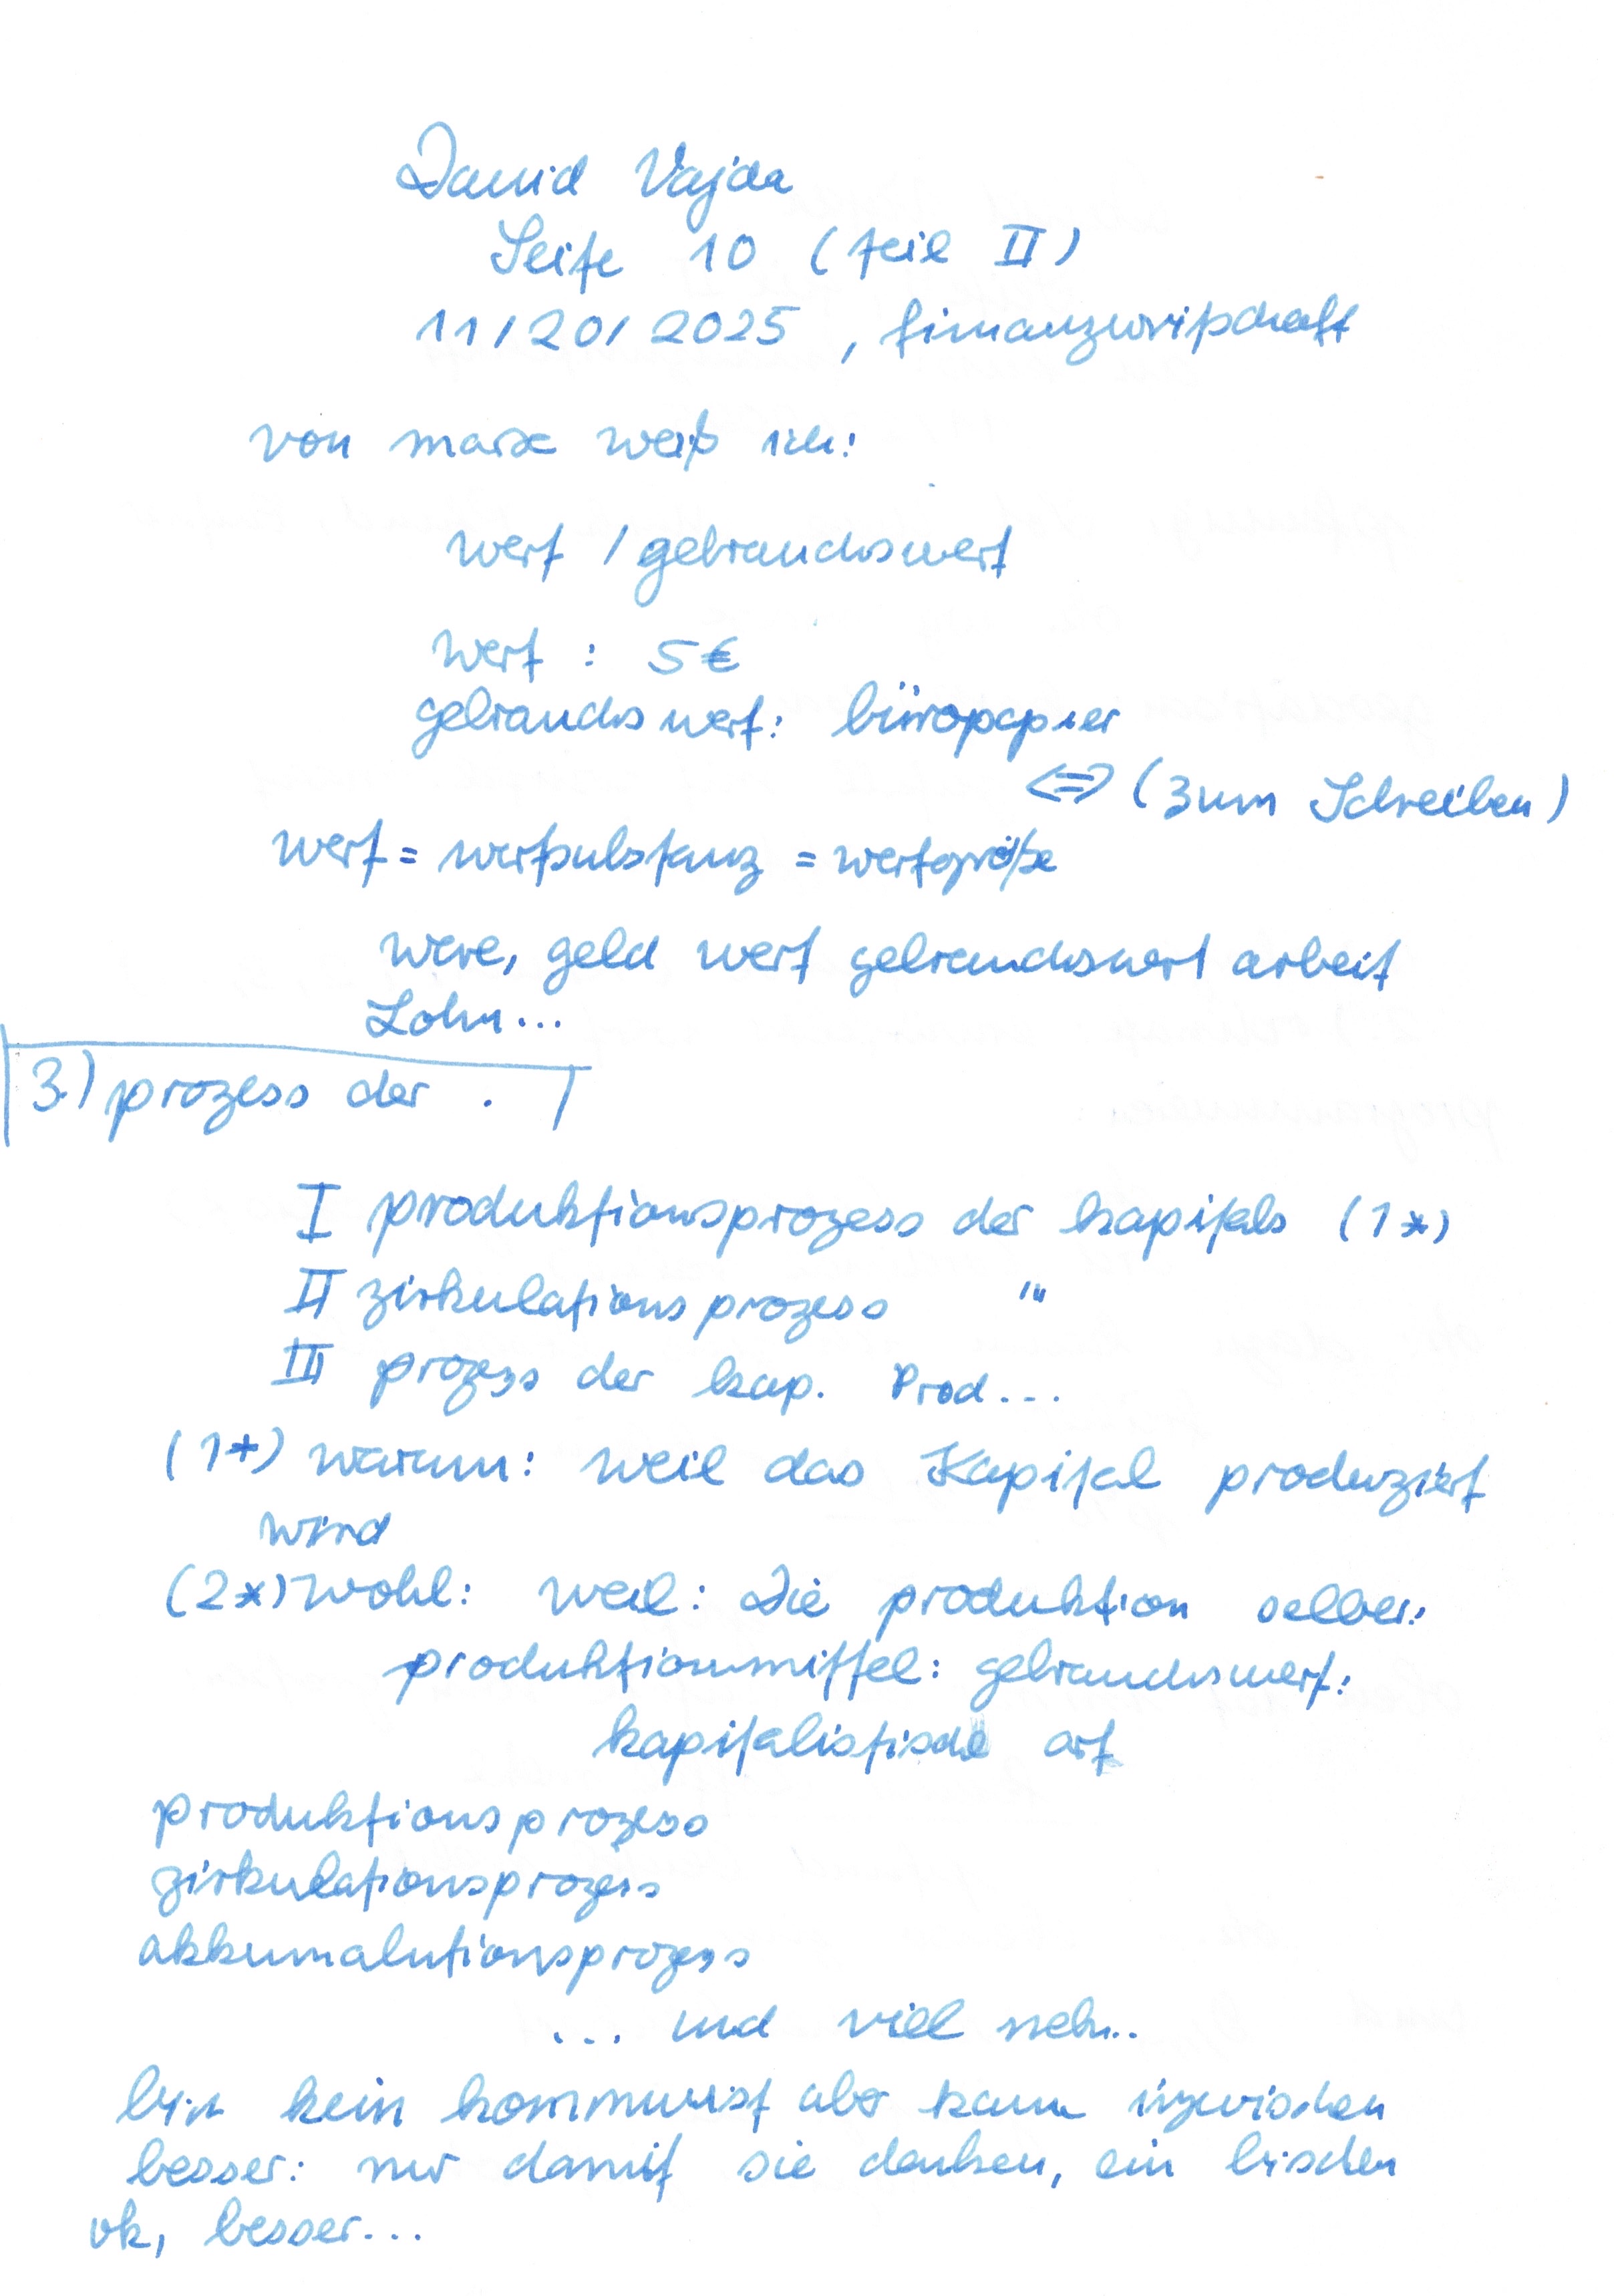 David Vajda
Seite 10 (teil II)
11/20/2025, finanzwirtschaft
von marx weiß ich:
wert / gebrauchswert
wert : 5€
gebrauchswert: büropapier
<=> (zum Schreiben)
wert = wertsubstanz = wertgröße
ware, geld wert gebrauchswert arbeit
Lohn...
3.) prozess der .
I produktionsprozess der kapitals (1*)
II zirkulationsprozess "
III prozess der kap. Prod...
(1*) warum: weil das Kapital produziert
wird
(2*) wohl: weil: Die produktion selber:
produktionsmittel: gebrauchswert:
kapitalistische art
produktionsprozess
zirkulationsprozess
akkumalutionsprozess
... und viel mehr..
bin kein kommunist aber kann inzwischen
besser: nur damit sie denken, ein bischen
ok, besser...